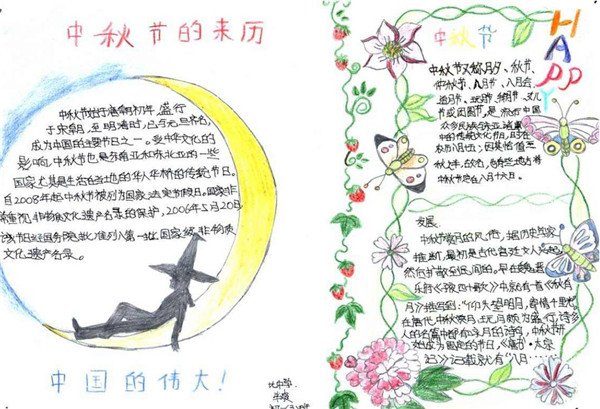 中秋节的来历
中秋节始于唐朝初年，盛行
于宋朝，至明清时，已与元旦齐名，
成为中国的主要节日之一。受中华文化的
影响，中秋节也是东南亚和东北亚的一些
国家尤其是生活在当地的华人华侨的传统节日。
自2008年起中秋节被列为国家法定节假日。国家非
常重视非物质文化遗产名录的保护，2006年5月20日
该节日经国务院批准列入第一批国家级非物质
文化遗产名录。
中国的伟大！
中秋节
HAPPY
中秋节又称月夕、秋节、
仲秋节、八月节、八月会、
追月节、玩月节、拜月节、女儿
节或团圆节，是流行于中国
众多民族与
的传统文化节日，时在
农历八月十五；因其恰值三
秋之半，故名，也有些地方将
中秋节定在八月十六日。
发展
中秋节赏月的风俗，据历史学家
推断，最初是古代宫廷文人兴起，
然后扩散至民间的。早在魏晋
乐府《子夜四十歌》中就有《秋有
月》描写到：“仰头望明月，寄情千里光”。
在唐代，中秋赏月、玩月颇为盛行，许多
人的名篇中都有咏月的诗句，中秋节开
始成为固定的节日，《唐书·太宗
记》记载就有“八月……